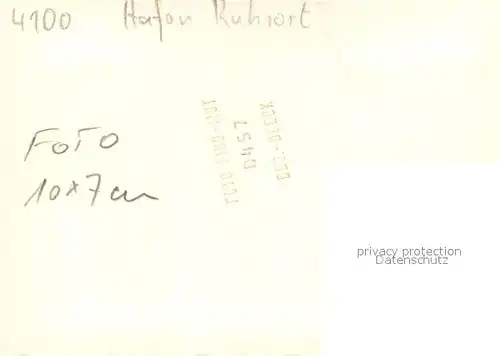 4100 Hafen Ruhrort
FOTO
10x7cm
privacy protection
Datenschutz